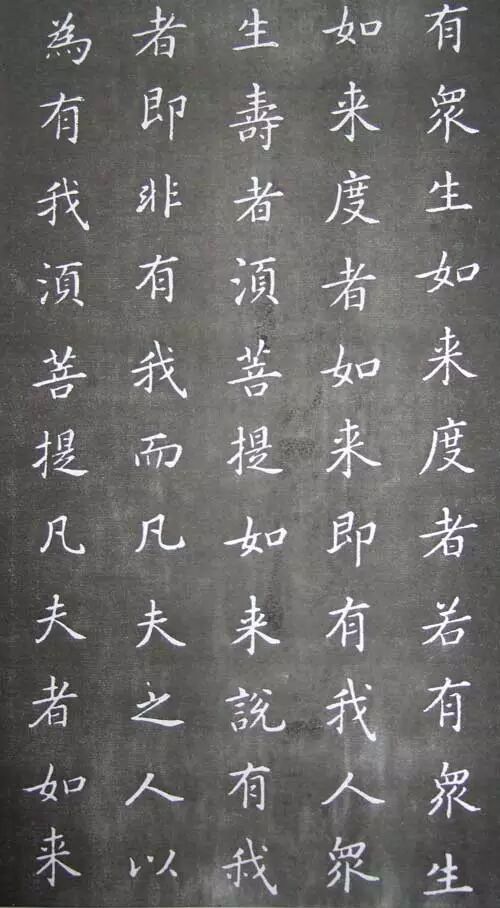 有眾生如来度者若有眾生
如来度者如来即有我人眾
生壽者湏菩提如来說有我
者即非有我而凡夫之人以
為有我湏菩提凡夫者如来